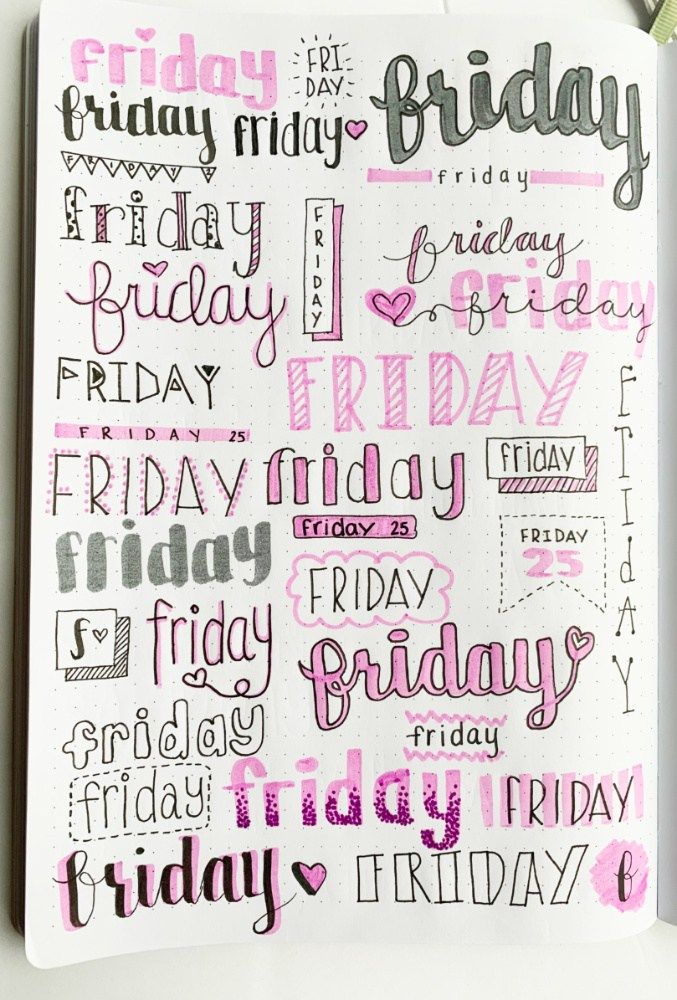 friday
FRI
DAY
friday
friday
friday
friday
FRIDAY
friday
friday
FRIDAY
friday
friday
friday
friday
FRIDAY
FRIDAY
frIdAY
FRIDAY 25
FRIDAY
friday
fridAY
friday 25
FRIDAY
25
friday
FRIDAY
f
friday
friday
friday
friday
friday
friday
FRIDAY
friday
FRIDAY
f